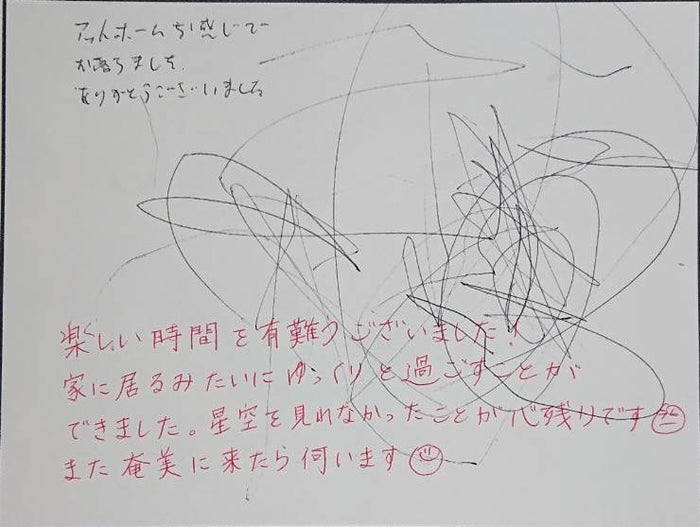 アットホームな感じで
お落ちました
ありがとうございました
楽しい時間を有難うございました!
家に居るみたいにゆっくりと過ごすことが
できました。星空を見れなかったことが心残りです
また奄美に来たら伺います